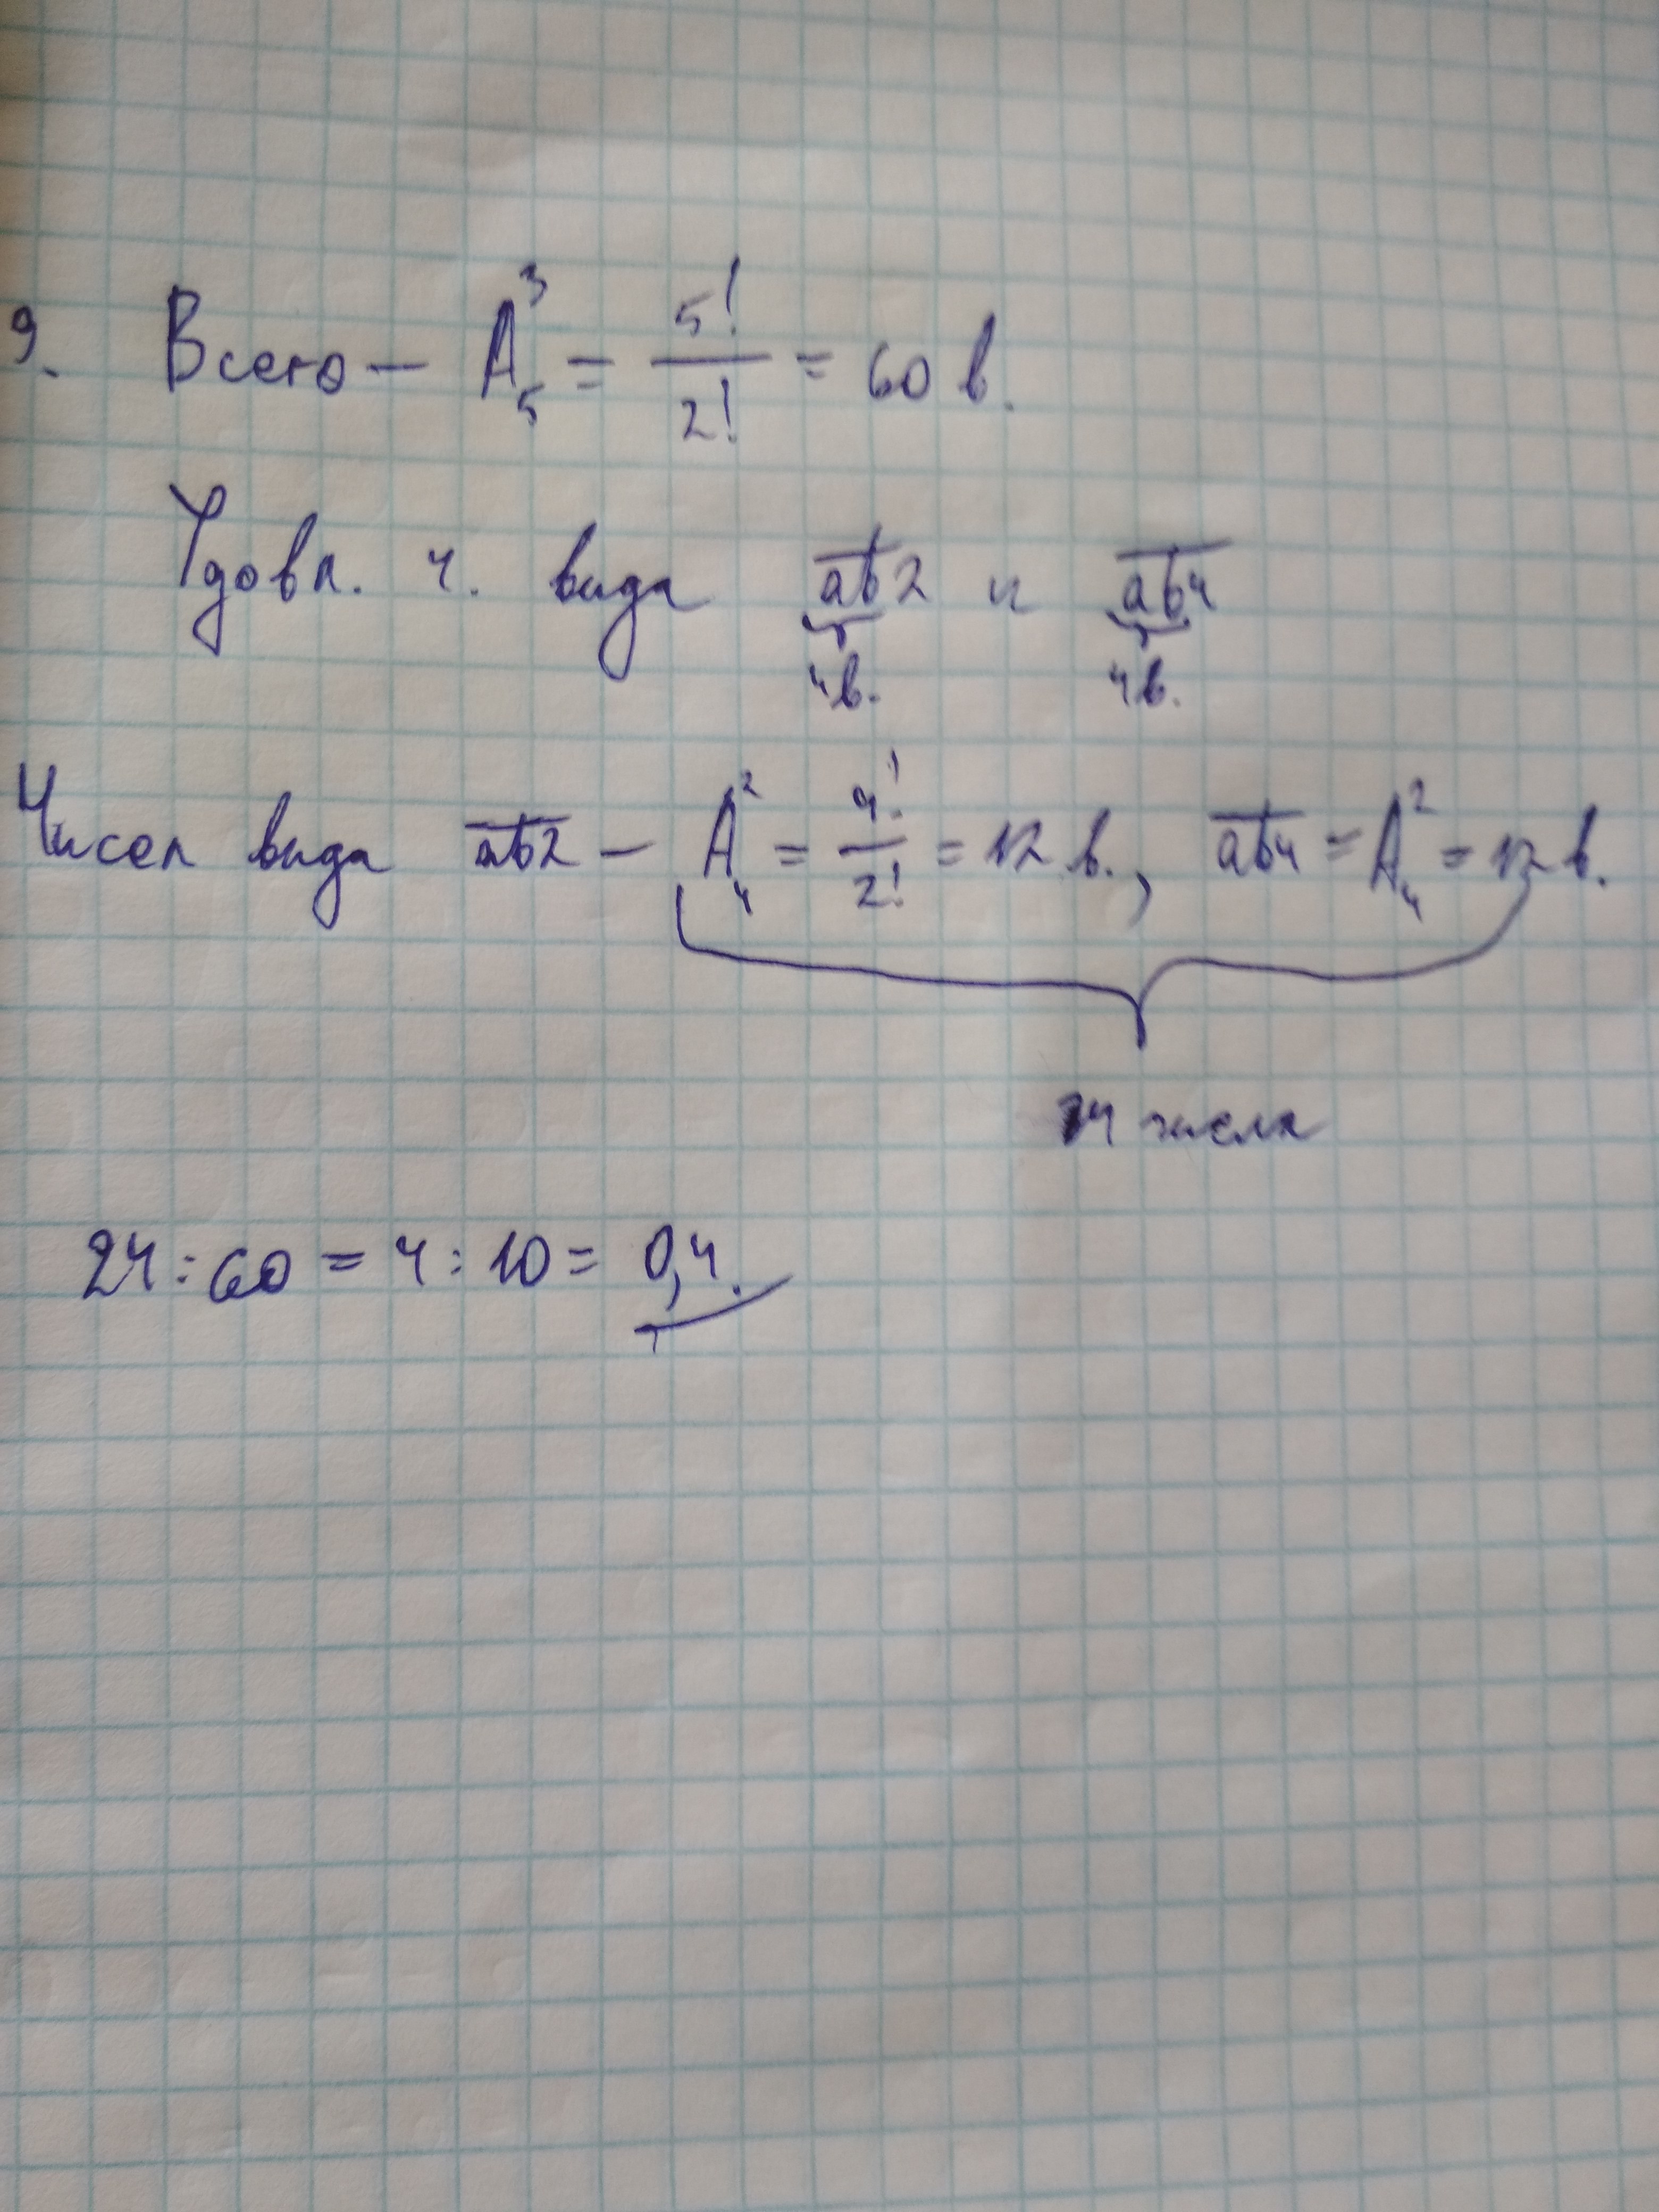 9. Всего — A₅³ = 5!/2! = 60 в.
Удовл. ч. вида ab2 и ab4
4в. 4в.
Чисел вида ab2 — A₄² = 4!/2! = 12 в., ab4 = A₄² = 12 в.
24 числа
24 : 60 = 4 : 10 = 0,4.